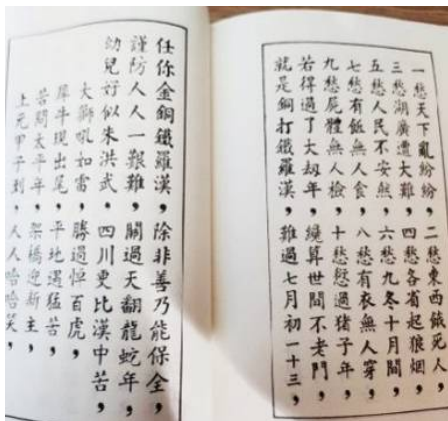 一愁天下亂紛紛，二愁東西餓死人，
三愁湖廣遭大難，四愁各省起狼烟，
五愁人民不安然，六愁九冬十月間，
七愁有飯無人食，八愁有衣無人穿，
九愁屍體無人檢，十愁愆過猪子年，
若得過了大刼年，纔算世間不老門，
就是銅打鐵羅漢，難過七月初一十三，
任你金銅鐵羅漢，除非善乃能保全，
謹防人人一艱難，關過天翻龍蛇年，
幼兒好似朱洪武，四川更比漢中苦，
大獅吼如雷，勝過悼百虎，
犀牛現出尾，平地遇猛苦，
若問太平年，架橋迎新主，
上元甲子到，人人哈哈笑，